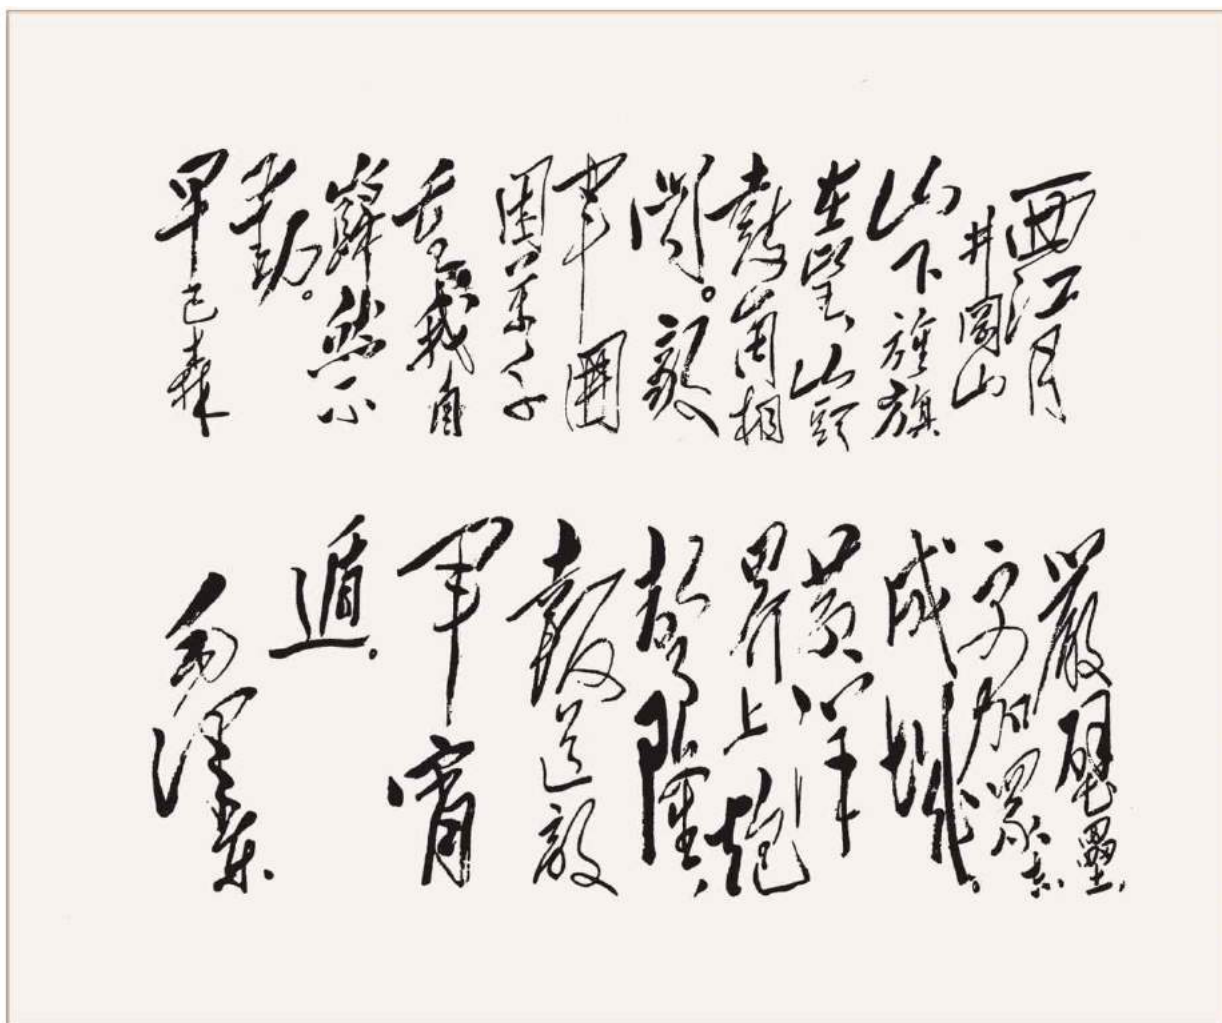 西江月
井岡山
山下旌旗
在望、山頭
鼓角相
聞。敵
軍圍
困萬千
重我自
巋然不
動。
早已森
嚴壁壘、
更加衆志
成城。
黄洋
界上炮
聲隆、
報道敵
軍宵
遁。
毛澤東